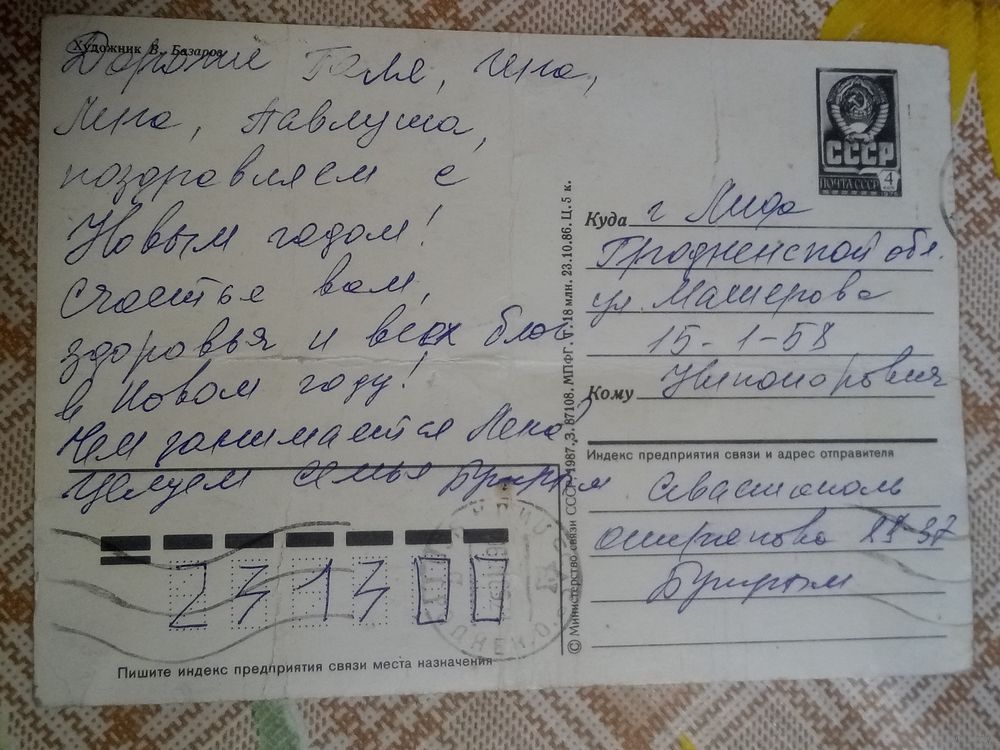 Художник В. Базаров
Дорогие Галя, Гена,
Лена, Павлуша,
поздравляем с
Новым годом!
Счастья вам,
здоровья и всех благ
в Новом году!
Чем занимается Лена?
Целуем семья
СССР
ПОЧТА СССР 4
Куда г Лида
Гродненской обл.
ул. Машерова
15-1-58
Кому
Индекс предприятия связи и адрес отправителя
Севастополь
231300
Пишите индекс предприятия связи места назначения
© Министерство связи СССР. 1987. З. 87108. МПФГ. Т. 18 млн. 23.10.86. Ц. 5 к.